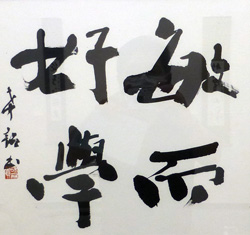 敏而
好學